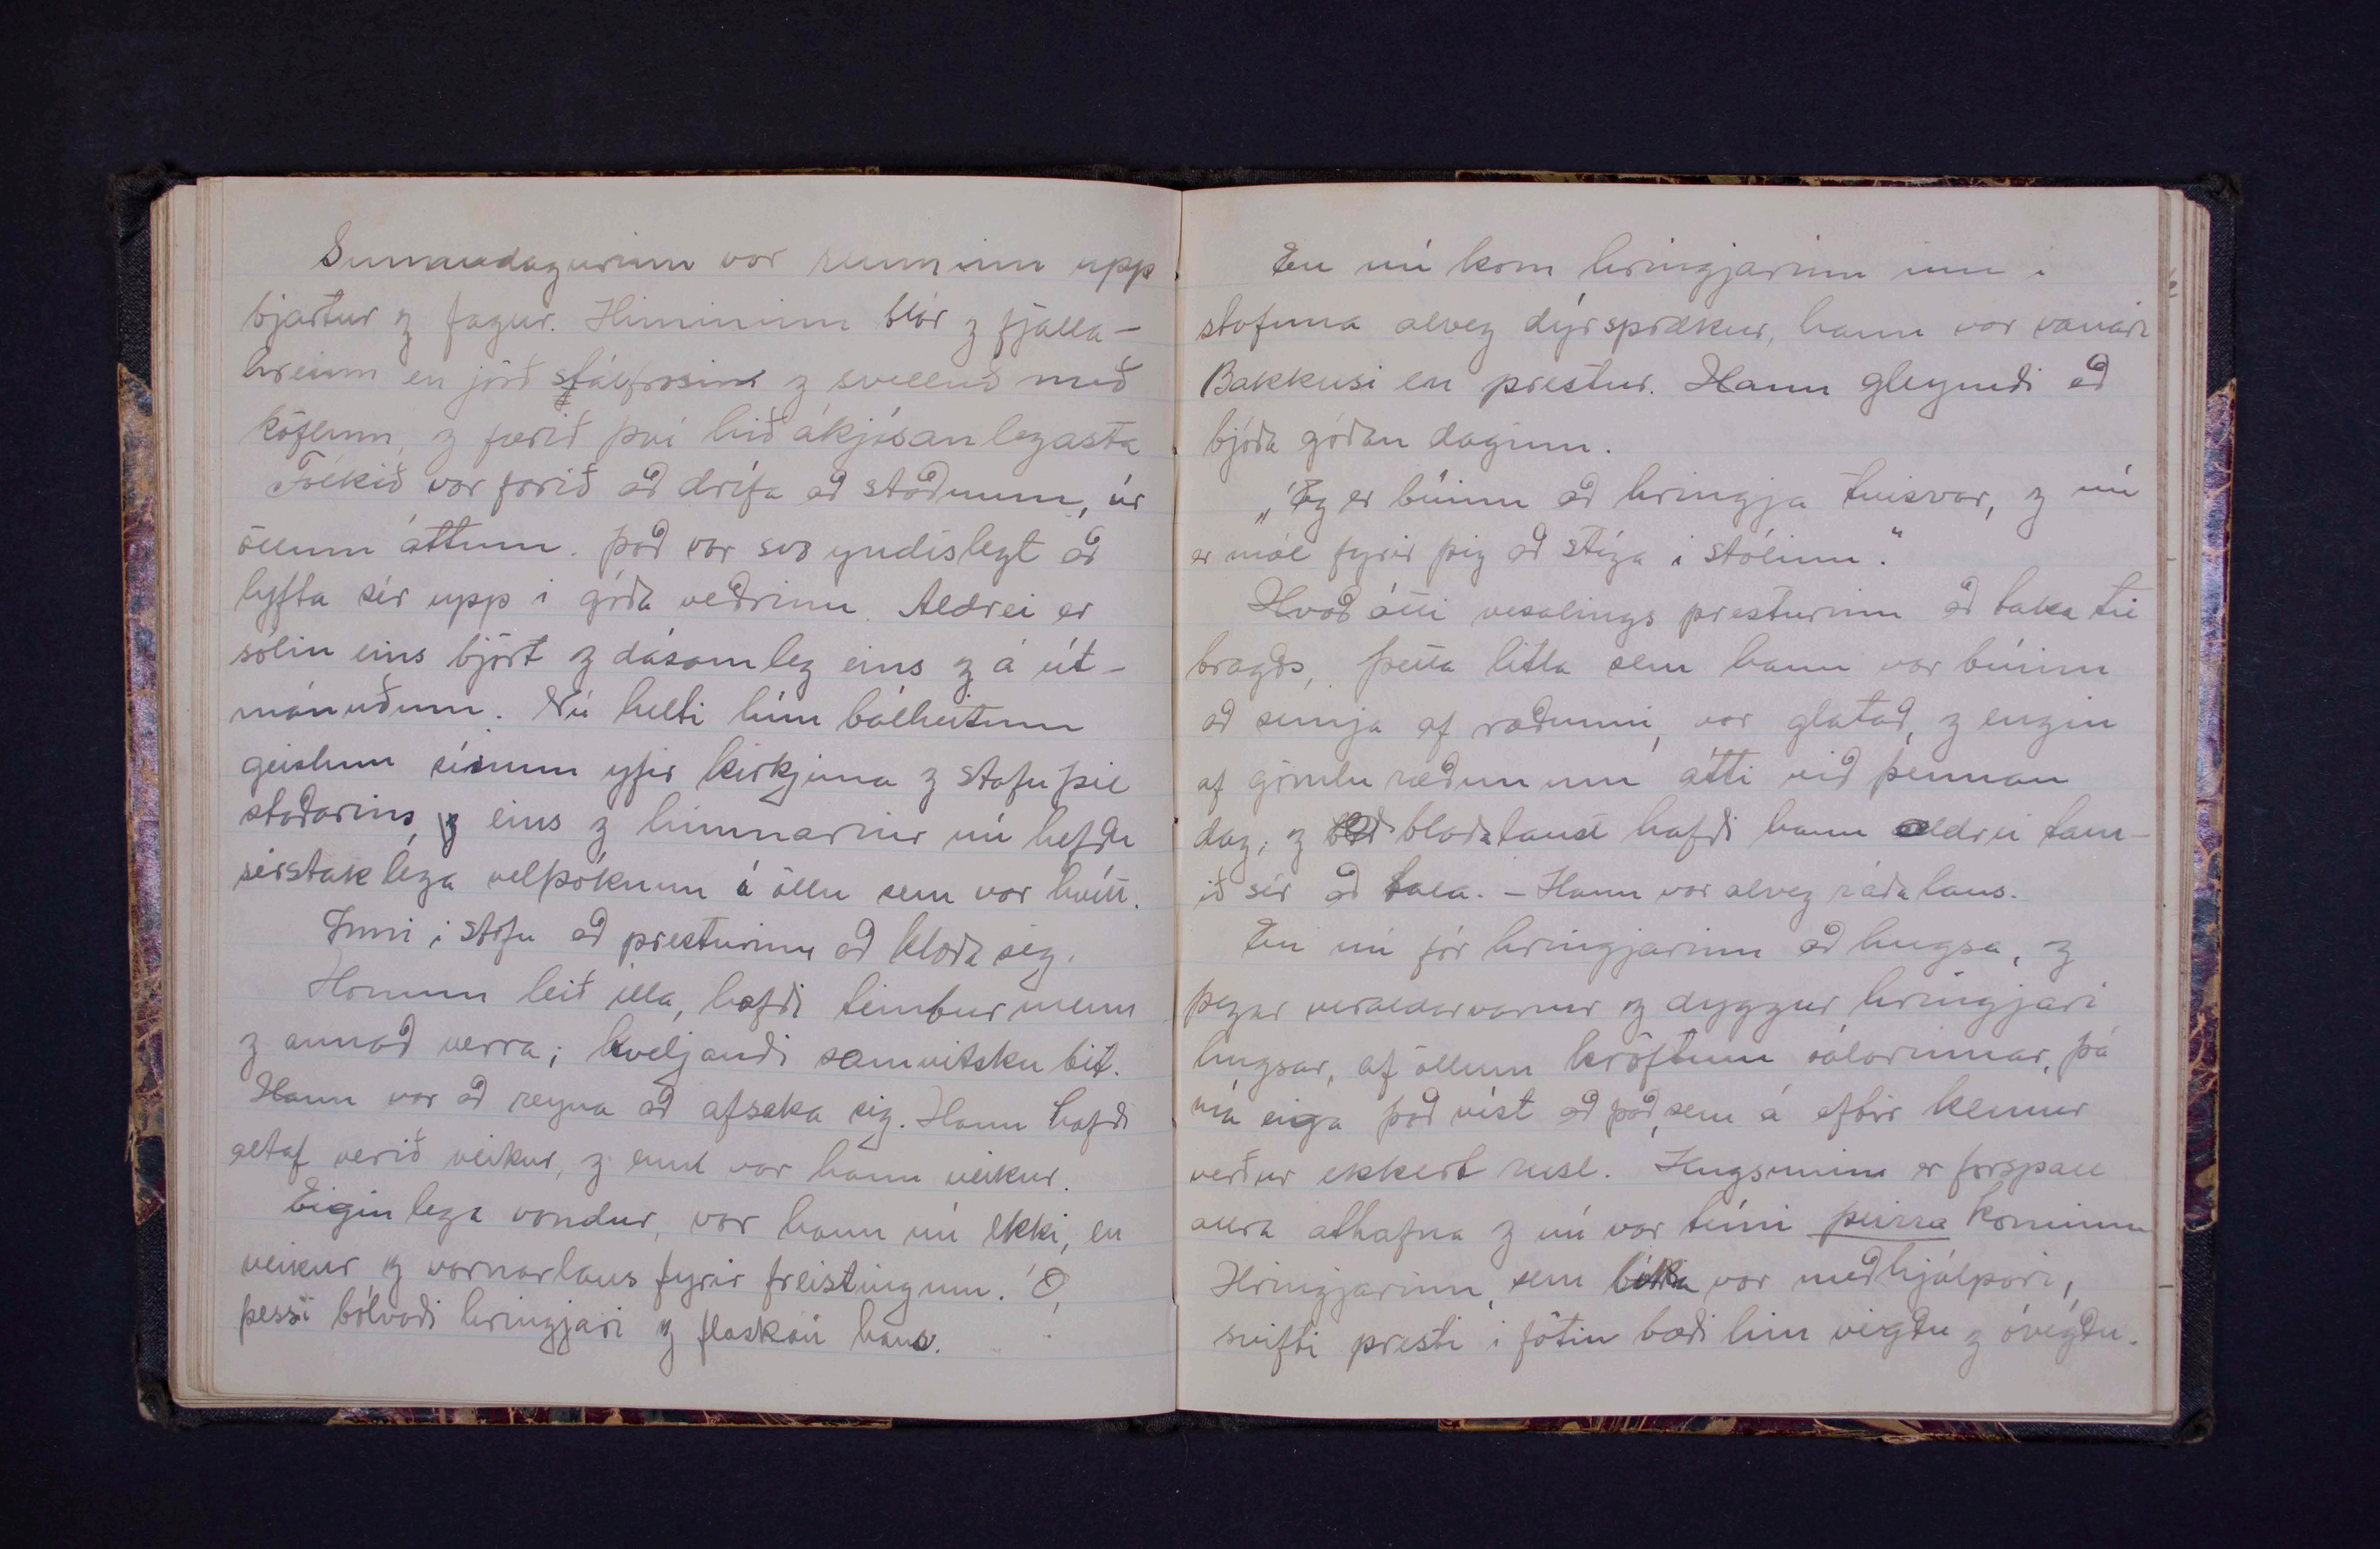 Sunnudagurinn var runninn upp
bjartur og fagur. Himininn blár og fjalla-
hreinn en jörð stálfrosin og svelluð með
köflum, og færið því hið ákjósanlegasta
Fólkið var farið að drífa að staðnum, úr
öllum áttum. það var svo yndislegt að
lyfta sér upp i góða veðrinu. Aldrei er
sólin eins björt og dásamleg eins og á út-
mánuðum. Nú helti hún bálheitum
geislum sínum yfir kirkjuna og stofuþil
staðarins, og eins og himnarnir nú hefðu
sérstaklega velþóknun á öllu sem var hvítt.
Inni i stofu að presturinn að klæða sig.
Honum leið illa, hafði timburmenn
og annað verra; kveljandi samvitsku bit.
Hann var að reyna að afsaka sig. Hann hafði
altaf verið veikur, og enn var hann veikur.
Eiginlega vondur, var hann nú ekki, en
veikur og varnarlaus fyrir freistingum. Ó,
þessi bölvaði hringjari og flaskan hans.
En nú kom hringjarinn inn i
stofuna alveg dýrsprækur, hann var vanari
Bakkusi en prestur. Hann gleymdi að
bjóða góðan daginn.
„Eg er búinn að hringja tvisvar, og nú
er mál fyrir þig að stíga i stólinn."
Hvað átti vesalings presturinn að taka til
bragðs, þetta litla sem hann var búinn
að semja af ræðunni, var glatað, og engin
af gömlu ræðunum átti við þennan
dag; og blaðalaust hafði hann aldrei tam-
ið sér að tala. - Hann var alveg ráðalaus.
En nú fór hringjarinn að hugsa, og
þegar veraldarvanur og dyggur hringjari
hugsar, af öllum kröftum sálarinnar, þá
má eiga það víst að það, sem á eftir kemur
verður ekkert rusl. Hugsunin er forspall
allra athafna og nú var tími þeirra kominn
Hringjarinn, sem líka var meðhjálpari,
svifti presti i fötin bæði hin vígðu og óvígðu.